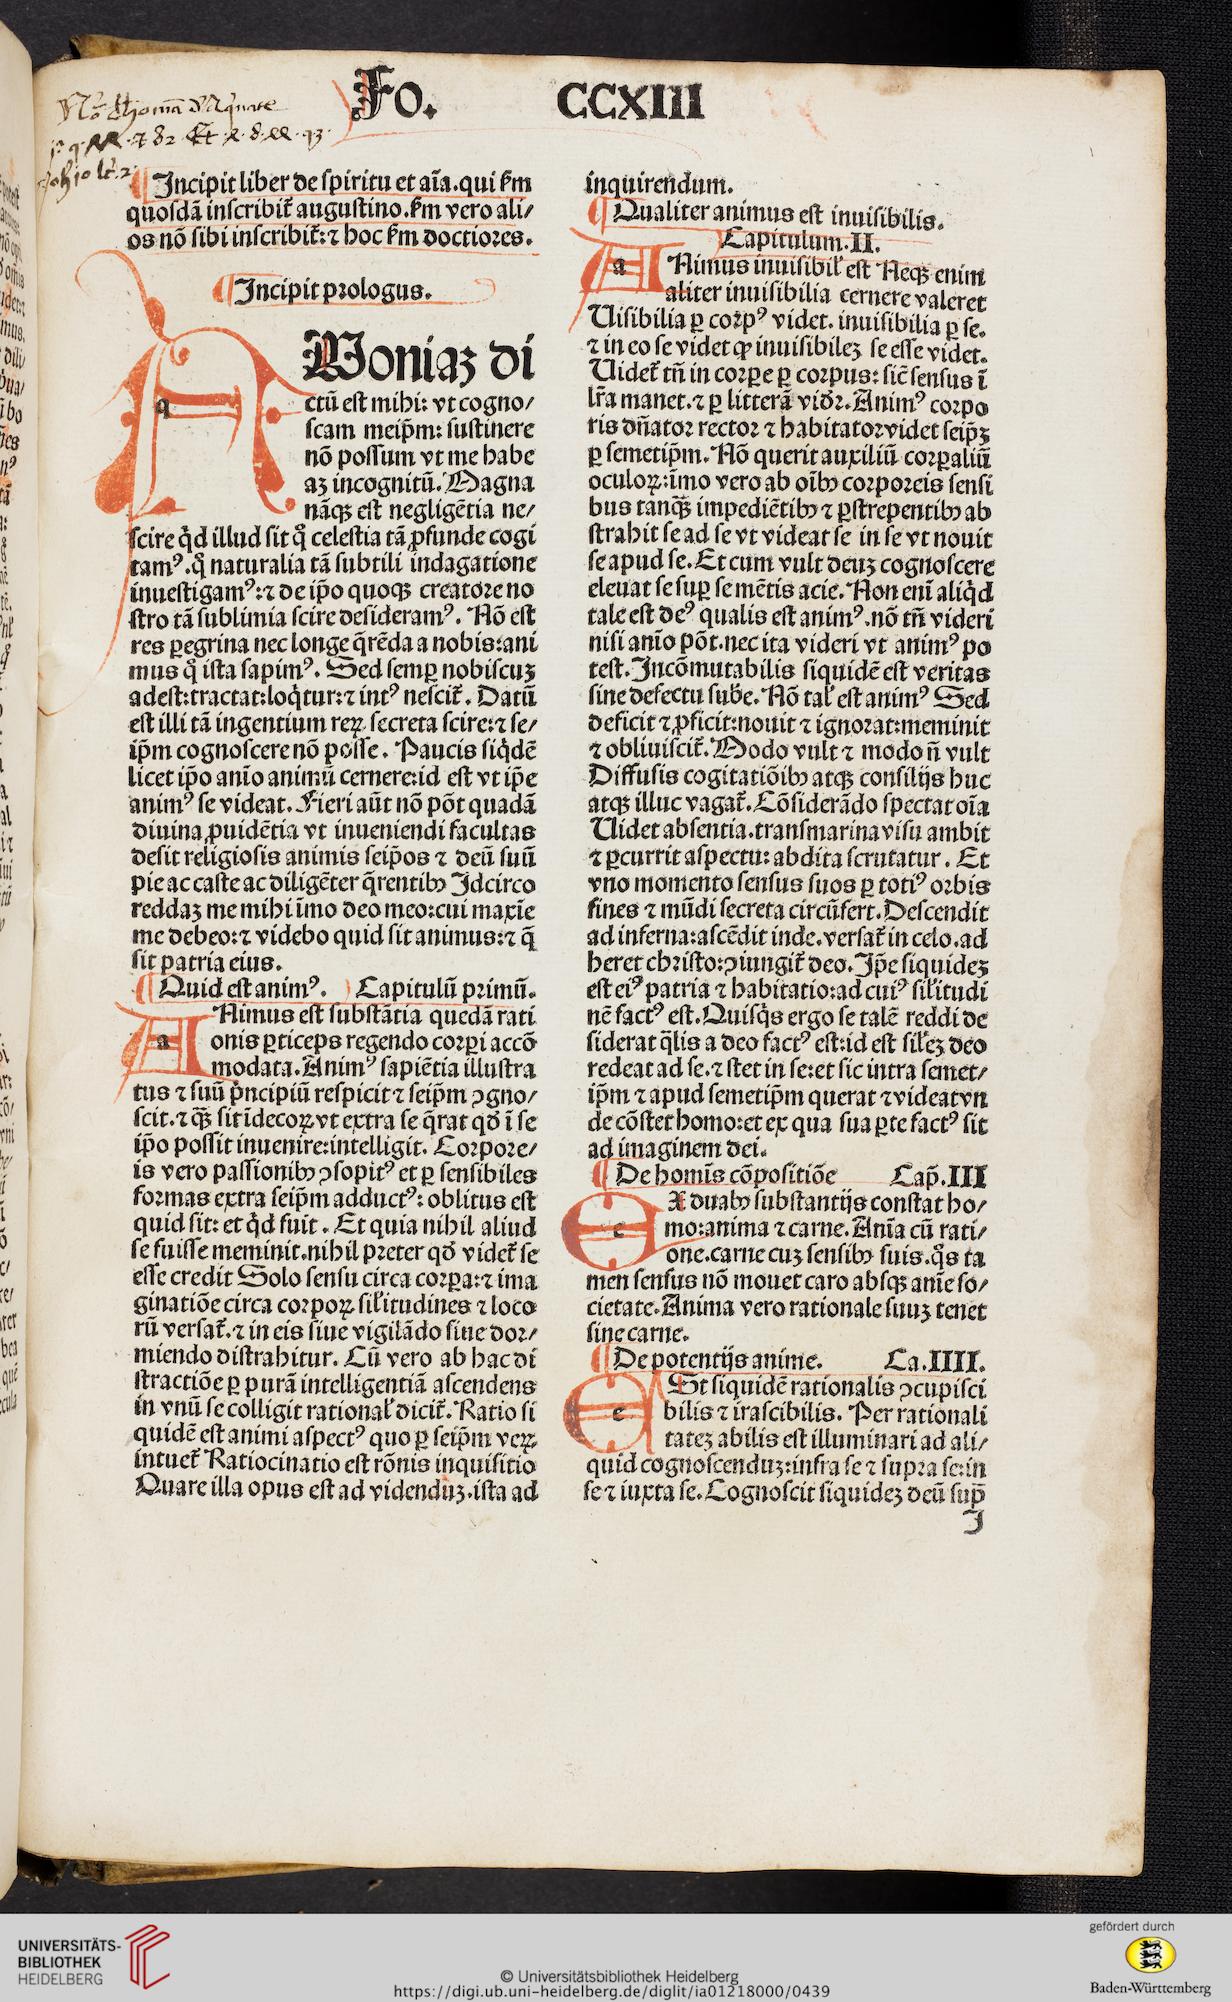 Fo. CCXIII
Incipit liber de spiritu et aīa.qui ẜm
quosdā inscribit᷑ augustino.ẜm vero ali/
os nō sibi inscribit᷑: ⁊ hoc ẜm doctiores.
Incipit prologus.
QVoniaꝫ di
ctū est mihi: vt cogno/
scam meip̄m: sustinere
nō possum vt me habe
aꝫ incognitū. Magna
nāqꝫ est negligētia ne/
scire qͥd illud sit qͦ celestia tā ꝓfunde cogi
tamꝰ.qͦ naturalia tā subtili indagatione
inuestigamꝰ: ⁊ de ip̄o quoqꝫ creatore no
stro tā sublimia scire desideramꝰ. Nō est
res peregrina nec longe q̄rēda a nobis:ani
mus qͦ ista sapimꝰ. Sed semꝑ nobiscuꝫ
adest:tractat:loqͥtur: ⁊ intꝰ nescit᷑. Datū
est illi tā ingentium reꝝ secreta scire: ⁊ se/
ip̄m cognoscere nō posse. Paucis siqͥdē
licet ip̄o aīo animū cernere:id est vt ip̄e
animꝰ se videat. Fieri aūt nō pōt quadā
diuina ꝓuidētia vt inueniendi facultas
desit religiosis animis seip̄os ⁊ deū suū
pie ac caste ac diligēter q̄rentibꝰ Idcirco
reddaꝫ me mihi īmo deo meo:cui maxīe
me debeo: ⁊ videbo quid sit animus: ⁊ q̄
sit patria eius.
Quid est animꝰ. Capitulū primū.
ANimus est substātia quedā rati
onis ꝑticeps regendo corꝑi accō
modata. Animꝰ sapiētia illustra
tus ⁊ suū pͥncipiū respicit ⁊ seip̄m ꝯgno/
scit. ⁊ qꝫ̄ sit īdecoꝝ vt extra se q̄rat qd̄ ī se
ip̄o possit inuenire:intelligit. Corpore/
is vero passionibꝰ ꝯsopitꝰ et ꝑ sensibiles
formas extra seip̄m adductꝰ: oblitus est
quid sit: et qͥd fuit. Et quia nihil aliud
se fuisse meminit.nihil preter qd̄ videt᷑ se
esse credit Solo sensu circa corꝑa: ⁊ ima
ginatiōe circa corpoꝝ sil̄itudines ⁊ loco
rū versat᷑. ⁊ in eis siue vigilādo siue dor/
miendo distrahitur. Cū vero ab hac di
stractiōe ꝑ purā intelligentiā ascendens
in vnū se colligit rational̄ dicit᷑. Ratio si
quidē est animi aspectꝰ quo ꝑ seip̄m veꝝ
intuet᷑ Ratiocinatio est rōnis inquisitio
Quare illa opus est ad videnduꝫ.ista ad
inquirendum.
Qualiter animus est inuisibilis.
Capitulum.II.
ANimus inuisibil̄ est Neqꝫ enim
aliter inuisibilia cernere valeret
Uisibilia ꝑ corpꝰ videt. inuisibilia ꝑ se.
⁊ in eo se videt ꝙ inuisibileꝫ se esse videt.
Uidet᷑ tn̄ in corꝑe ꝑ corpus: sic̄ sensus ī
lr̄a manet. ⁊ ꝑ litterā vid̄r. Animꝰ corpo
ris dn̄ator rector ⁊ habitator videt seip̄ꝫ
ꝑ semetip̄m. Nō querit auxiliū corꝑaliū
oculoꝝ:īmo vero ab oībꝰ corporeis sensi
bus tanqꝫ̄ impediētibꝰ ⁊ ꝑstrepentibꝰ ab
strahit se ad se vt videat se in se vt nouit
se apud se. Et cum vult deuꝫ cognoscere
eleuat se suꝑ se mētis acie. Non enī aliqͥd
tale est deꝰ qualis est animꝰ.nō tn̄ videri
nisi aīo pōt.nec ita videri vt animꝰ po
test. Incōmutabilis siquidē est veritas
sine defectu sub̄e. Nō tal̄ est animꝰ Sed
deficit ⁊ ꝓficit:nouit ⁊ ignorat:meminit
⁊ obliuiscit᷑. Modo vult ⁊ modo n̄ vult
Diffusis cogitatiōibꝰ atqꝫ consilijs huc
atqꝫ illuc vagat᷑. Cōsiderādo spectat oīa
Uidet absentia.transmarina visu ambit
⁊ ꝑcurrit aspectu: abdita scrutatur. Et
vno momento sensus suos ꝑ totiꝰ orbis
fines ⁊ mūdi secreta circūfert. Descendit
ad inferna:ascēdit inde.versat᷑ in celo.ad
heret christo:ꝯiungit᷑ deo. Ip̄e siquideꝫ
est eiꝰ patria ⁊ habitatio:ad cuiꝰ sil̄itudi
nē factꝰ est. Quisqͥs ergo se talē reddi de
siderat q̄lis a deo factꝰ est:id est sil̄eꝫ deo
redeat ad se. ⁊ stet in se:et sic intra semet/
ip̄m ⁊ apud semetip̄m querat ⁊ videat vn
de cōstet homo:et ex qua sua ꝑte factꝰ sit
ad imaginem dei.
De homīs cōpositiōe Cap̄.III
EX duabꝰ substantijs constat ho/
mo:anima ⁊ carne. Anīa cū rati/
one.carne cuꝫ sensibꝰ suis.qͦs ta
men sensus nō mouet caro absqꝫ anīe so/
cietate. Anima vero rationale suuꝫ tenet
sine carne.
De potentijs anime. Ca.IIII.
ESt siquidē rationalis ꝯcupisci
bilis ⁊ irascibilis. Per rationali
tateꝫ abilis est illuminari ad ali/
quid cognoscenduꝫ:infra se ⁊ supra se:in
se ⁊ iuxta se. Cognoscit siquideꝫ deū suꝑ
I
UNIVERSITÄTS-
BIBLIOTHEK
HEIDELBERG
© Universitätsbibliothek Heidelberg
https://digi.ub.uni-heidelberg.de/diglit/ia01218000/0439
gefördert durch
Baden-Württemberg